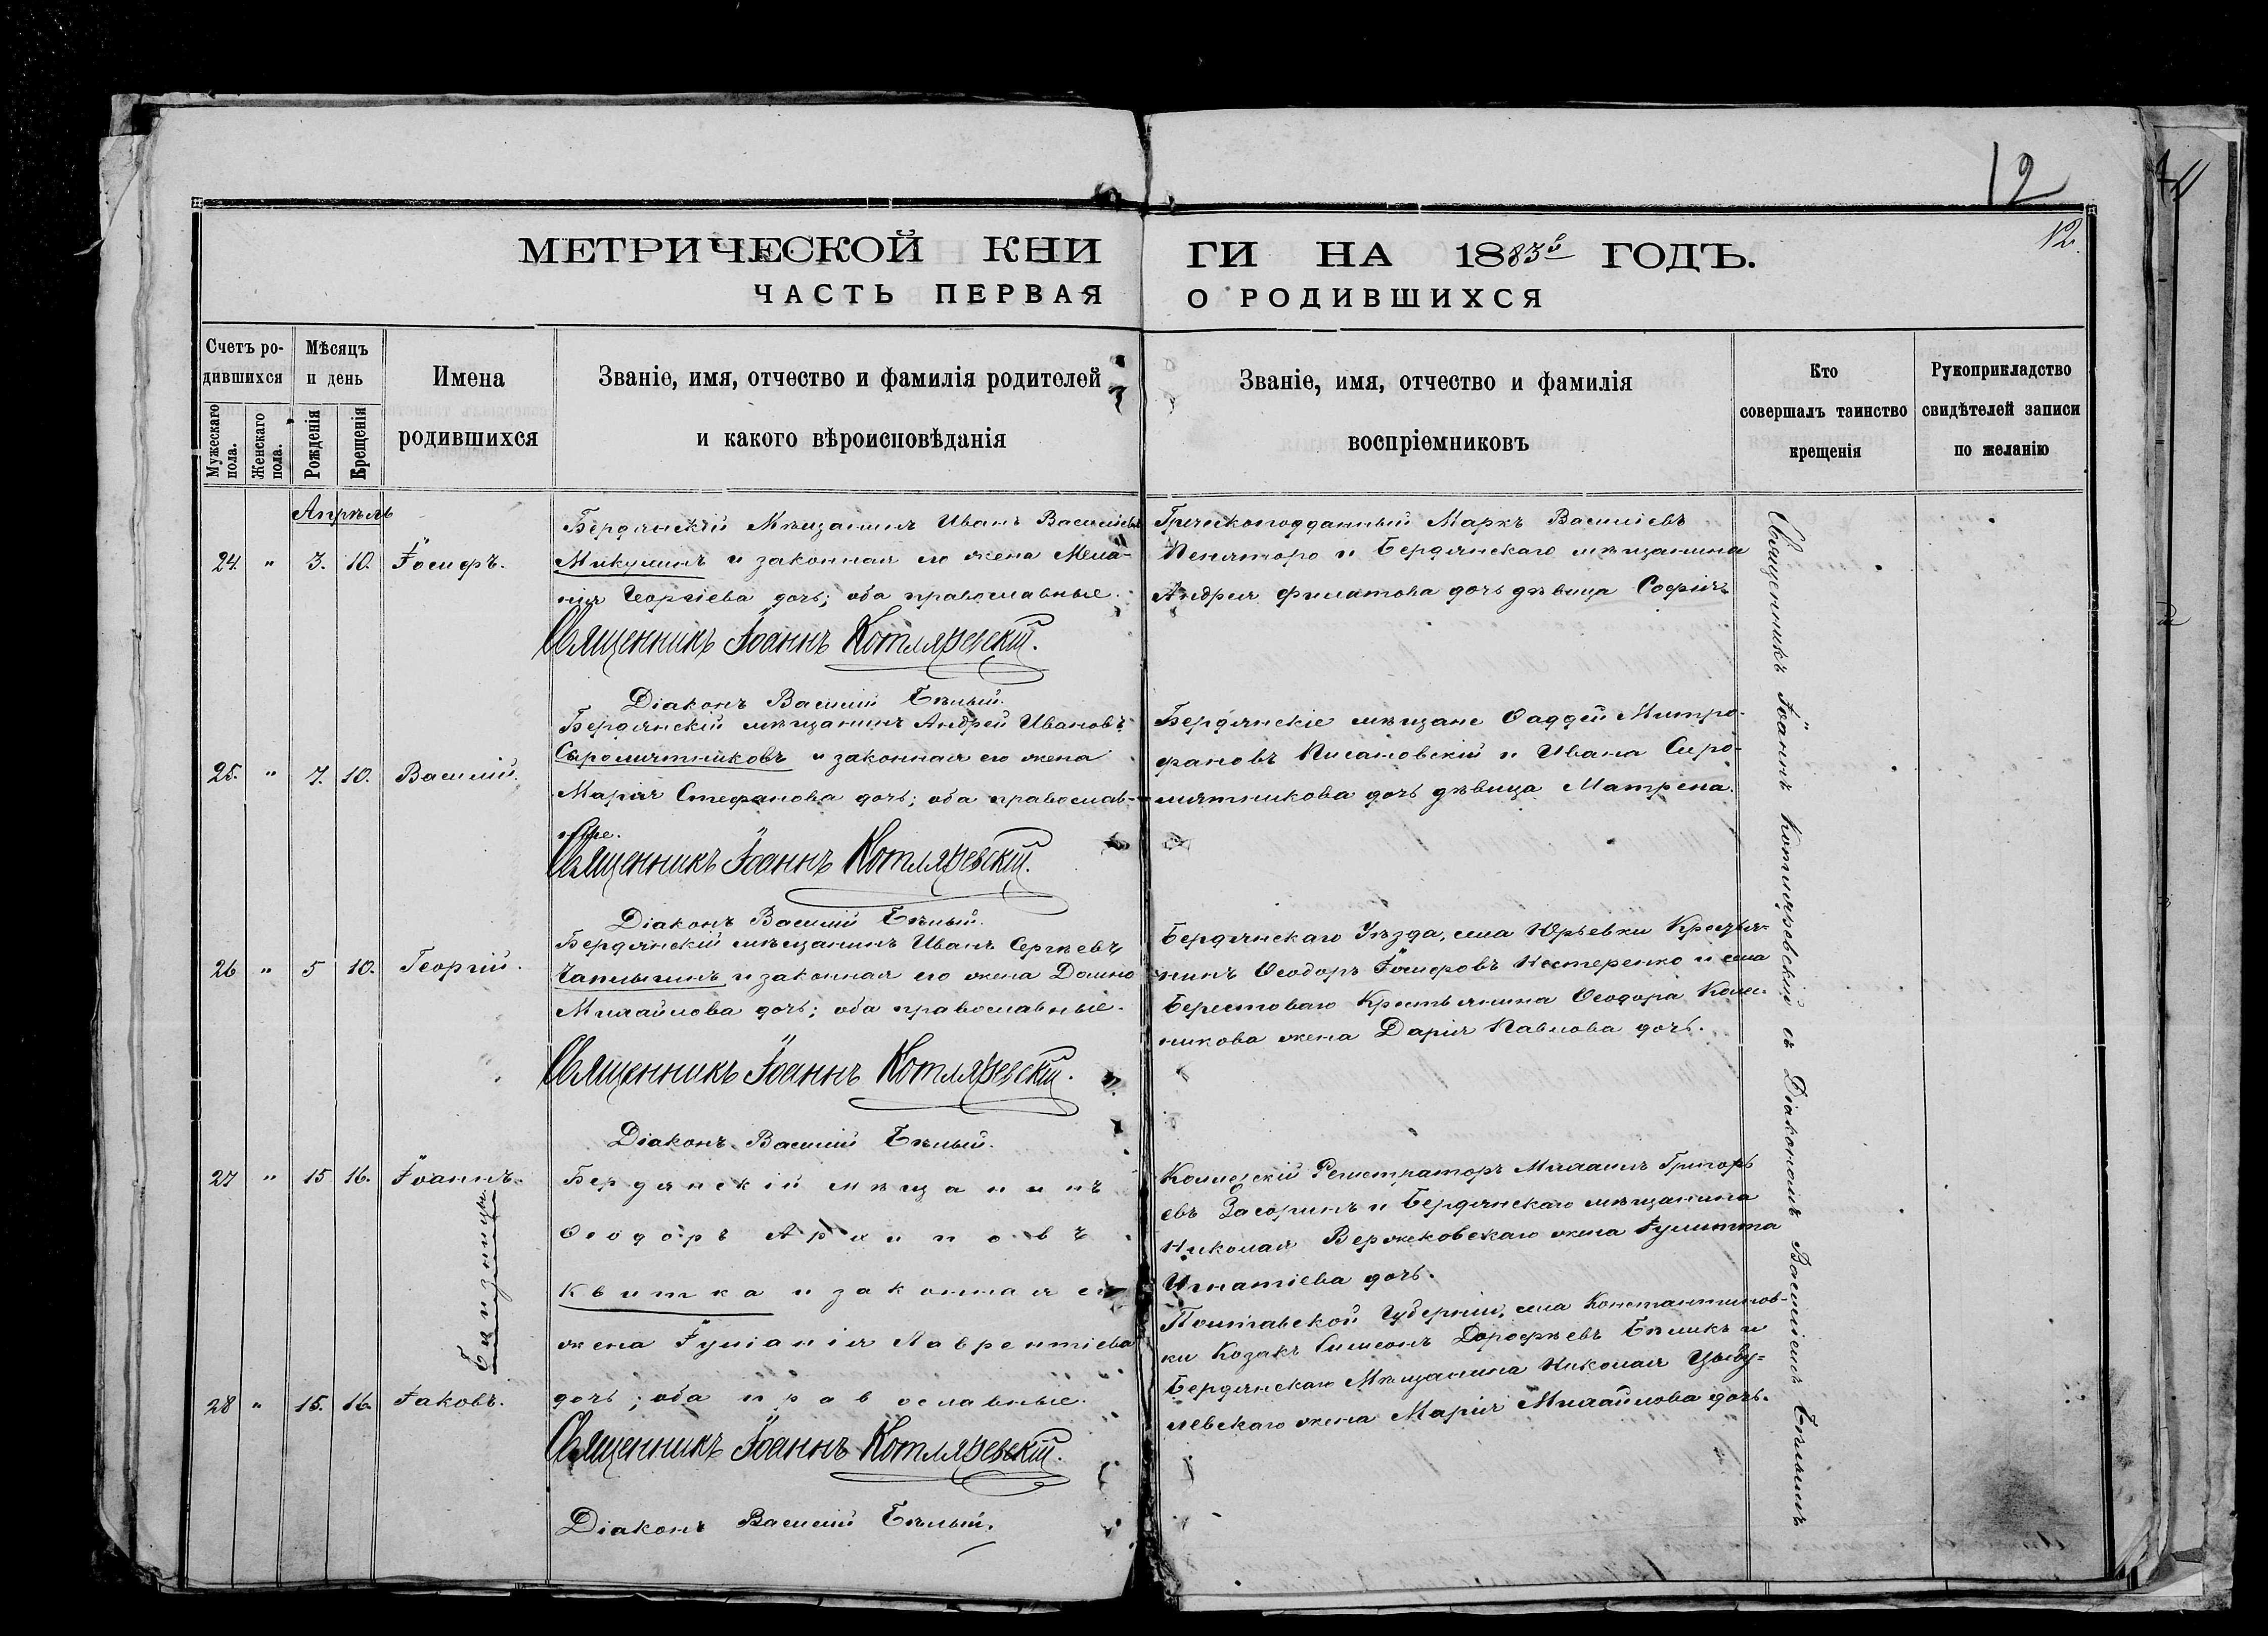 12
12
МЕТРИЧЕСКОЙ КНИ
ГИ НА 1883й ГОДЪ.
ЧАСТЬ ПЕРВАЯ
О РОДИВШИХСЯ
Счетъ ро-
дившихся
Мужескаго пола.
Женскаго пола.
Мѣсяцъ
и день
Рожденія
Крещенія
Имена
родившихся
Званіе, имя, отчество и фамилія родителей
и какого вѣроисповѣданія
Званіе, имя, отчество и фамилія
воспріемниковъ
Кто
совершалъ таинство
крещенія
Рукоприкладство
свидѣтелей записи
по желанію
Апрѣль
24. " 3. 10. Іосифъ.
Бердянскій Мѣщанинъ Иванъ Васильевъ
Микулинъ и законная его жена Мела-
нія Георгіева дочь; оба православные.
Священникъ Іоаннъ Котляревскій.
Діаконъ Василій Бѣлый.
Греческоподданный Маркъ Василіевъ
и Бердянскаго мѣщанина
Андрея Филатова дочь дѣвица Софія.
25. " 7. 10. Василій.
Бердянскій мѣщанинъ Андрей Ивановъ
Сыромятниковъ и законная его жена
Марія Стефанова дочь; оба православ-
ные.
Священникъ Іоаннъ Котляревскій.
Діаконъ Василій Бѣлый.
Бердянскіе мѣщане Фаддей Митро-
фановъ Писановскій и Ивана Сыро-
мятникова дочь дѣвица Матрена.
26 " 5 10. Георгій.
Бердянскій мѣщанинъ Иванъ Сергѣевъ
Чаплыгинъ и законная его жена Домна
Михайлова дочь; оба православные.
Священникъ Іоаннъ Котляревскій.
Діаконъ Василій Бѣлый.
Бердянскаго Уѣзда, села Юрьевки Крестья-
нинъ Ѳеодоръ Іосифовъ Нестеренко и села
Берестоваго Крестьянина Ѳеодора Колес-
никова жена Дарія Павлова дочь.
27 " 15 16. Іоаннъ.
Близнецы
28 " 15. 16. Іаковъ.
Бердянскій мѣщанинъ
Ѳеодоръ Архиповъ
Квитка и законная его
жена Іуліанія Лаврентіева
дочь; оба православные.
Священникъ Іоаннъ Котляревскій.
Діаконъ Василій Бѣлый.
Коллежскій Регистраторъ Михаилъ Григорь
евъ Засоринъ и Бердянскаго мѣщанина
Николая Вержековскаго жена Іулитта
Игнатіева дочь.
Полтавской Губерніи, села Константинов-
ки Козакъ Симеонъ Дорофѣевъ Бѣликъ и
Бердянскаго Мѣщанина Николая Цыбу-
левскаго жена Марія Михайлова дочь.
Священникъ Іоаннъ Котляревскій съ Діакономъ Василіемъ Бѣлымъ